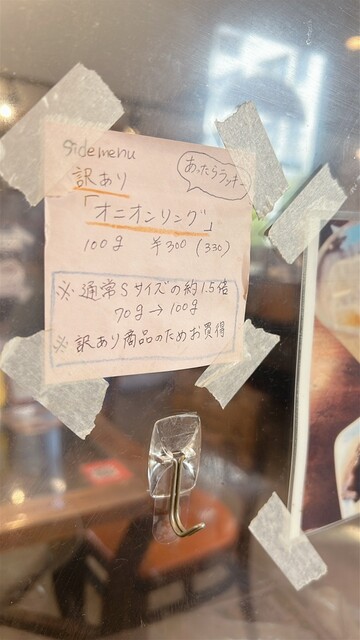 sidemenu
訳あり
あったらラッキー
「オニオンリング」
100g ¥300 (330)
※ 通常Sサイズの約1.5倍
70g → 100g
※ 訳あり商品のためお買得